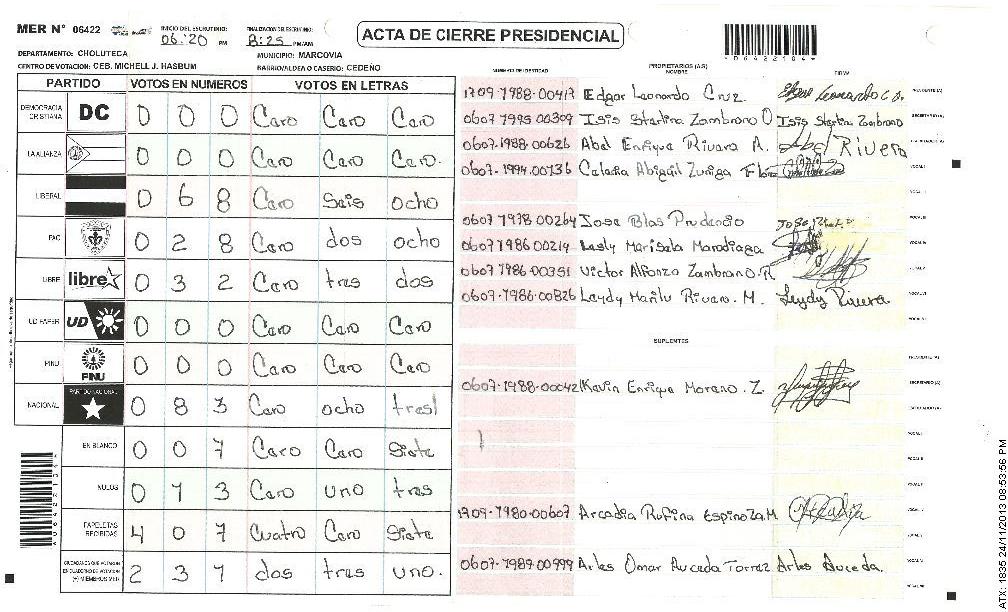 MER N° 06422
INICIO DEL ESCRUTINIO: 06:20 PM
FINALIZACION DEL ESCRUTINIO: 8:25 PM/AM
ACTA DE CIERRE PRESIDENCIAL
*06422104*
DEPARTAMENTO: CHOLUTECA
MUNICIPIO: MARCOVIA
CENTRO DE VOTACION: CEB. MICHELL J. HASBUM
BARRIO/ALDEA O CASERIO: CEDEÑO
PARTIDO VOTOS EN NUMEROS VOTOS EN LETRAS
DEMOCRACIA CRISTIANA DC 0 0 0 Cero Cero Cero
LA ALIANZA 0 0 0 Cero Cero Cero.
LIBERAL 0 6 8 Cero Seis ocho
PAC 0 2 8 Cero dos ocho
LIBRE libre 0 3 2 Cero tres dos
UD FAPER UD 0 0 0 Cero Cero Cero
PINU PINU 0 0 0 Cero Cero Cero
NACIONAL PARTIDO NACIONAL 0 8 3 Cero ocho tres
EN BLANCO 0 0 7 Cero Cero Siete
NULOS 0 1 3 Cero uno tres
PAPELETAS RECIBIDAS 4 0 7 Cuatro Cero Siete
CIUDADANOS QUE VOTARON EN CUADERNO DE VOTACION (+) MIEMBROS MER 2 3 1 dos tres uno.
NUMERO DE IDENTIDAD PROPIETARIOS (AS) NOMBRE FIRMA
1709-1988-00417 Edgar Leonardo Cruz PRESIDENTE (A)
0607 1995 00309 Isis Starlina Zambrano O Isis Starlina Zambrano SECRETARIO (A)
0607-1988-00626 Abel Enrique Rivera A. Abel Rivera
0607-1994-00136 Abigail Zuniga VOCAL I
VOCAL II
0607 1978 00264 Jose Blas Prudencio VOCAL III
0607 1986 00214 Lesly Marisela Maradiaga VOCAL IV
0607 1986-00351 Victor Alfonzo Zambrano.R. VOCAL V
0607-1986-00826 Leydy Marilu Rivera. M. Leydy Rivera VOCAL VI
SUPLENTES
PRESIDENTE (A)
0607-1988-00042 Kevin Enrique Moreno. Z. SECRETARIO (A)
VOCAL I
VOCAL II
1709-1980-00607 Arcadia Rufina Espinoza.M
0607-1989-00999 Arles Omar Auceda Torrez Arles Auceda.
ATX: 1835 24/11/2013 08:53:56 PM